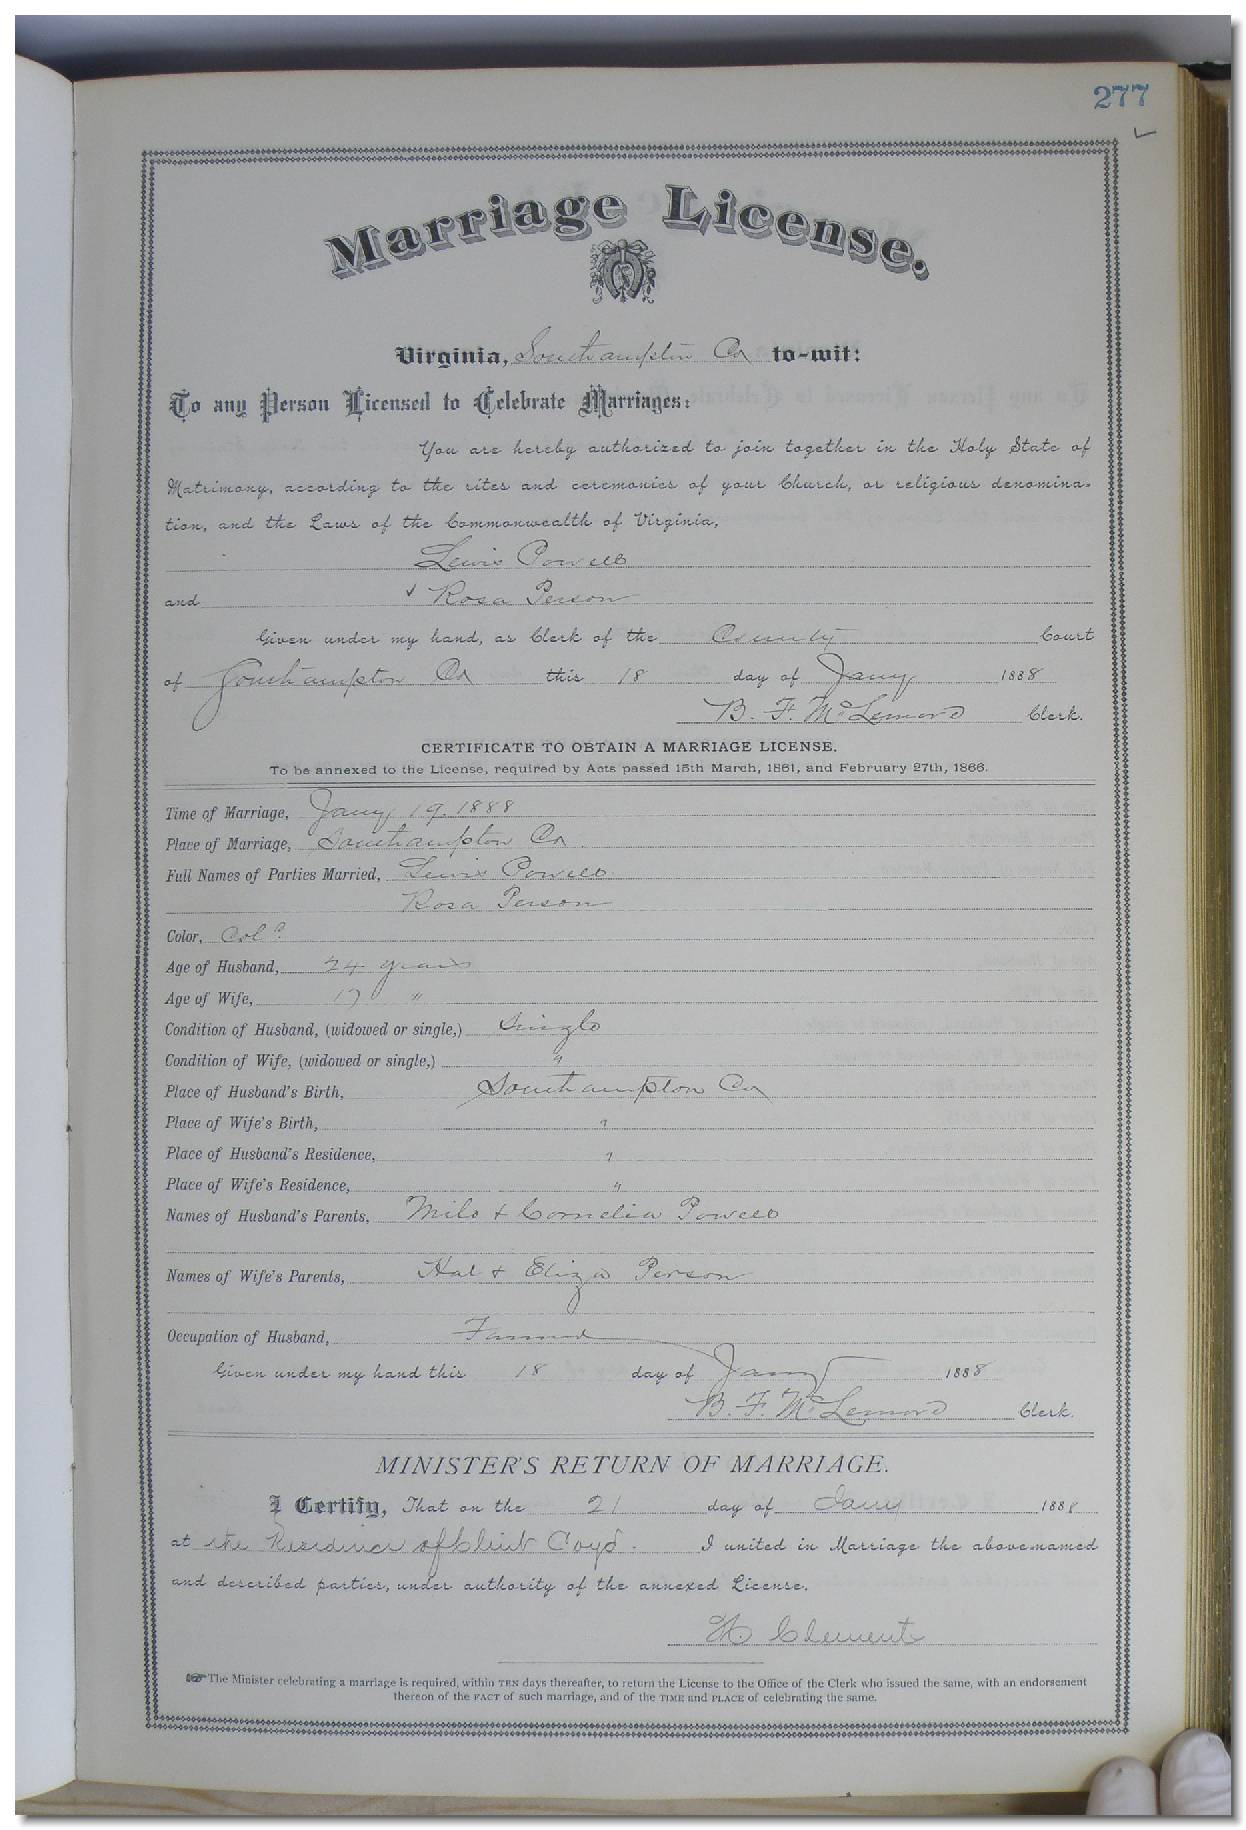 277
Marriage License.
Virginia, Southampton Co to-wit:
To any Person Licensed to Celebrate Marriages:
You are hereby authorized to join together in the Holy State of
Matrimony, according to the rites and ceremonies of your Church, or religious denomina-
tion, and the Laws of the Commonwealth of Virginia,
Lewis Powell
and Rosa Person
Given under my hand, as Clerk of the County Court
of Southampton Co this 18 day of Jany 1888
B. F. McLemore Clerk.
CERTIFICATE TO OBTAIN A MARRIAGE LICENSE.
To be annexed to the License, required by Acts passed 15th March, 1861, and February 27th, 1866.
Time of Marriage, Jany 19 1888
Place of Marriage, Southampton Co
Full Names of Parties Married, Lewis Powell
Rosa Person
Color, Cold
Age of Husband, 24 years
Age of Wife, 17 "
Condition of Husband, (widowed or single,) Single
Condition of Wife, (widowed or single,) "
Place of Husband's Birth, Southampton Co
Place of Wife's Birth, "
Place of Husband's Residence, "
Place of Wife's Residence, "
Names of Husband's Parents, Milo + Cornelia Powell
Names of Wife's Parents, Hal + Eliza Person
Occupation of Husband, Farmer
Given under my hand this 18 day of Jany 1888
B. F. McLemore Clerk.
MINISTER'S RETURN OF MARRIAGE.
I Certify, That on the 21 day of Jany 1888
at the Residence of I united in Marriage the above-named
and described parties, under authority of the annexed License.
Clements
The Minister celebrating a marriage is required, within TEN days thereafter, to return the License to the Office of the Clerk who issued the same, with an endorsement
thereon of the FACT of such marriage, and of the TIME and PLACE of celebrating the same.